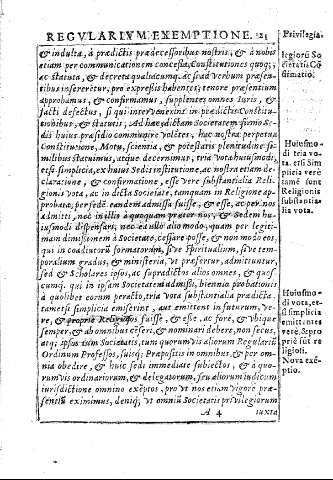 REGVLARIVM EXEMPTIONE.
& indulta, à prædictis prædecessoribus nostris, & à nobis
etiam per communicationem concessa, Constitutiones quoq;;
ac statuta, & decreta qualiacumq. ac si ad verbum præsen-
tibus insererētur, pro expressis habentes; tenore præsentium
approbamus, & confirmamus, supplentes omnes Iuris, &
facti defectus, si qui interuenerint in prædictis Constitu-
tionibus, & statutis. Ad hæc eisdem Societatem firmio-
dis huius præsidio communire volētes, hac nostra perpetua
Constitutione, Motu, scientia, & potestatis plenitudine si-
milibus statuimus, atque decernimus, tria vota huiusmodi,
etsi simplicia, ex huius Sedis institutione, ac nostra etiam de-
claratione, & confirmatione, esse vere substantialia Reli-
gionis vota, ac in dicta Societate, tamquam in Religione ap-
probata, per sedē eandem admissa fuisse, & esse, ac per nos
admitti, nec in illis à quoquam præter nos, & Sedem hu-
iusmodi dispensari, nec ea vllo alio modo, quam per legiti-
mam dimissionem à Societate, cessare posse, & non modo eos,
qui in coadiutores formatorum, siue Spiritualium, siue tem-
poralium gradus, & ministeria, vt præfertur, admittuntur,
sed & Scholares ipsos, ac supradictos alios omnes, & quos
cumq. qui in ipsam Societatem admissi, biennio probationis
à quolibet eorum peracto, tria vota substantialia prædicta.
tametsi simplicia emiserint, aut emittent in futurum, ve-
re, & proprie Religiosos fuisse, & esse, ac fore, & vbique
semper, & ab omnibus cēseri, & nominari debere, non secus,
atq; ipsos tum Societatis, tum quorumuis aliorum Regulariū
Ordinum Professos, suisq; Præpositis in omnibus, & per om-
nia obedire, & huic sedi immediate subiectos, & à quo-
rumuis ordinariorum, & delegatorum, seu aliorum iudicum
iurisdictione omnino exēptos, pro vt nos etiam vigore præ-
sentiū eximimus, deniq; vt omniū Societatis priuilegiorum
A 4 iuxta
Priuilegia.
legiorū So
cietatis Cō
firmatio.
Huiusmo-
di tria vo-
ta. etsi Sim
plicia verè
tamē sunt
Religionis
substantia-
lia vota.
Huiusmo-
di vota, et-
si simplicia
emittentes
vere, & pro
priè sūt re
ligiosi.
Noua exē-
ptio.